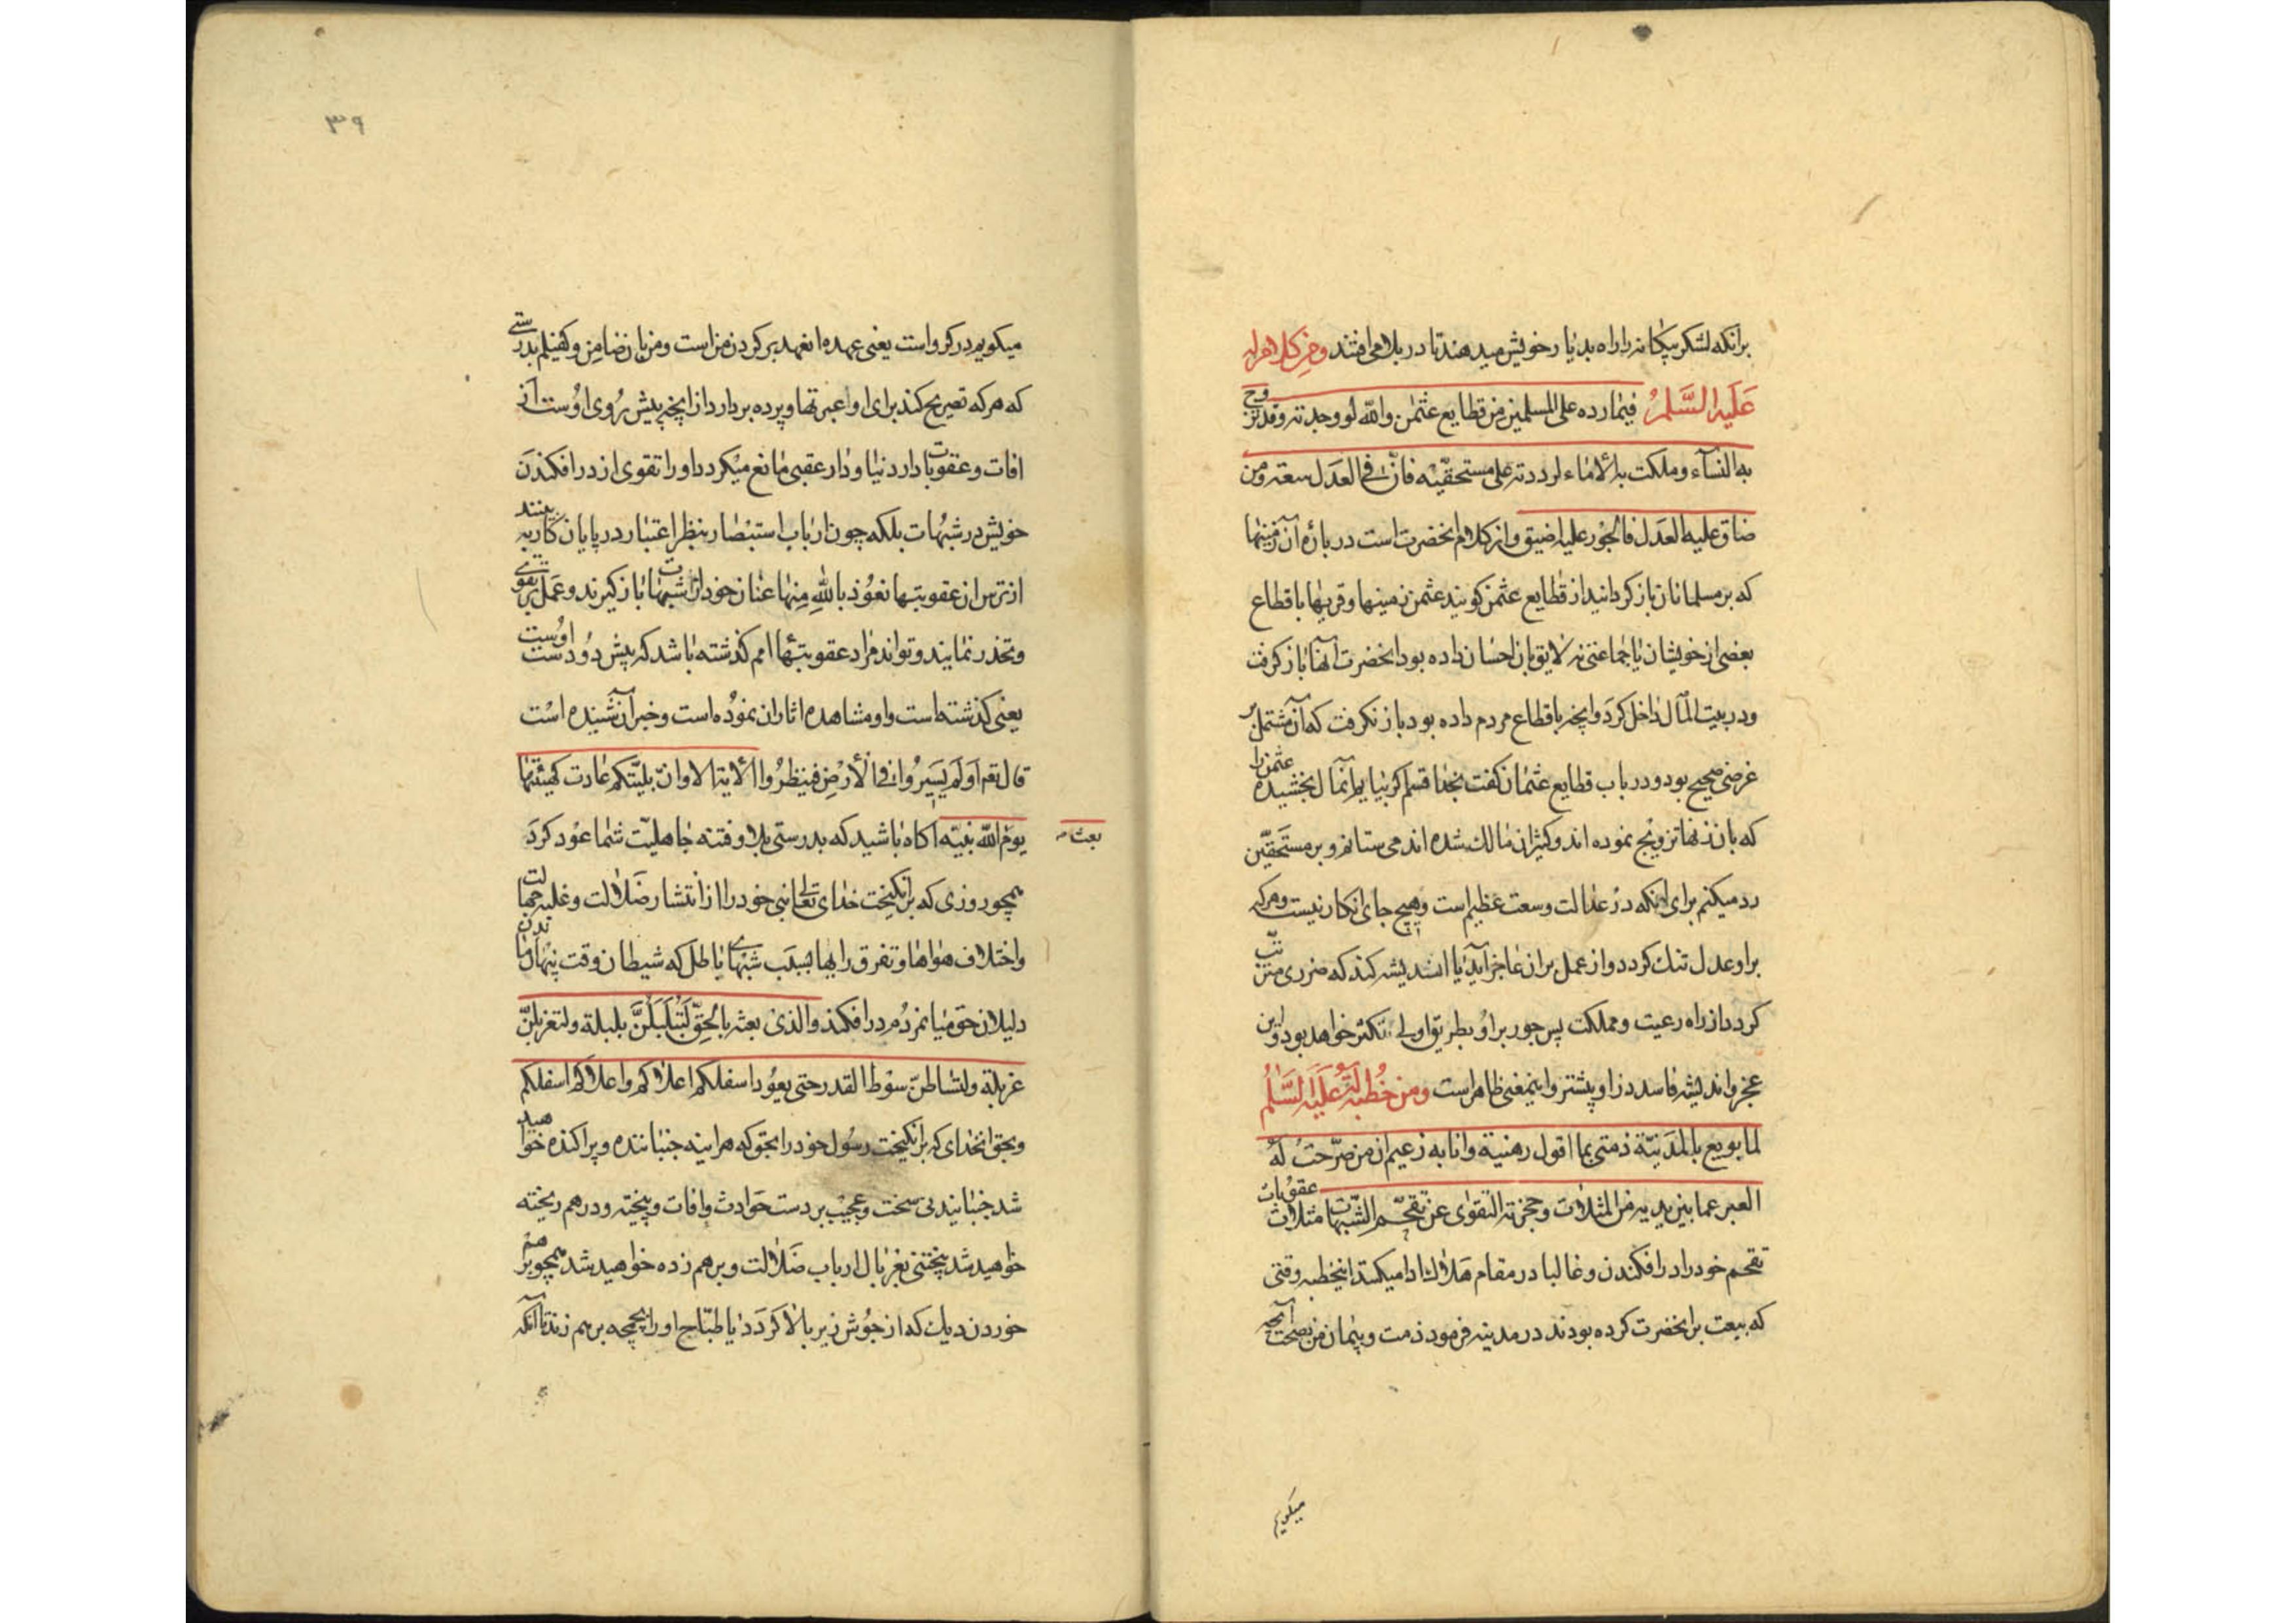 برانکه لشکر بیکانه را راه بدیار خویش میدهند تا در بلا می افتند ومن کلام له
علیه السلم فیما رده علی المسلمین من قطایع عثمن والله لو وجدته وقد تزوج
به النسآء وملکت به الاماء لرددته علی مستحقیه فان فی العدل سعة ومن
ضاق علیه العدل فالجور علیه اضیق واز کلام انحضرت است در باره آن زمینها
که بر مسلمانان باز کردانید از قطایع عثمن کویند عثمن زمینها وقریها باقطاع
بعضی از خویشان یا جماعتی نه لایق بان احسان داده بود انحضرت انها باز کرفت
ودر بیت المال داخل کرد وانچه باقطاع مردم داده بود باز نکرفت که آن مشتمل بر
غرضی صحیح بود ودر باب قطایع عثمان کفت بخدا قسم اکر بیابم آنمال بخشیده عثمن را
که بان زنها تزویج نموده اند وکنیزان مالک شده اند می ستانم وبر مستحقین
رد میکنم برای اینکه در عدالت وسعت عظیم است وهیچ جای انکار نیست وهرکه
براو عدل تنک کردد واز عمل بران عاجز آید ایا اندیشه کند که ضرری مترتب
کردد از راه رعیت ومملکت پس جور براو بطریق اولی تنکتر خواهد بود واین
عجز واندیشه فاسد در او پیشتر واینمعنی ظاهر است ومن خطبة له علیه السلم
لما بویع بالمدینة ذمتی بما اقول رهینة وانا به زعیم ان من صرحت له
العبر عما بین یدیه من المثلات وحجزته التقوی عن تقحم الشبهات مثلات عقوبات
تقحم خود را درافکندن وغالبا در مقام هلاک ادا میکنند اینخطبه وقتی
که بیعت برانحضرت کرده بودند در مدینه فرمود ذمت وپیمان من بصحت آنچه
میکویم
۳۹
میکویم در کرو است یعنی عهده انعهد بر کردن من است ومن بان ضامن وکفیلم بدرستی
که هرکه تصریح کند برای او اعبرتها وپرده بردارد از انچه پیش روی اوست از
افات وعقوبات دار دنیا ودار عقبی مانع میکردد او را تقوی از درافکندن
خویش در شبهات بلکه چون ارباب استبصار بنظر اعتبار در پایان کار به بینند
از ترس ان عقوبتها نعوذ بالله منها عنان خود از شبهات باز کیرند وعمل بر تقوی
وتحذر نمایند وتواند مراد عقوبتهاا امم کذشته باشد که پیش دودست اوست
یعنی کذشته است واو مشاهده اثار ان نموده است وخبر آن شنیده است
قال تعم اولم یسیروا فی الارض فینظروا الایة الا وان بلیتکم عادت کهیئتها
یوم الله نبیه اکاه باشید که بدرستی بلا وفتنه جاهلیت شما عود کرد
بعث م
همچو روزی که برانکیخت خدای تعالی نبی خود را از انتشار ضلالت وغلبه جهالت
واختلاف هواها وتفرق رایها بسبب شبهای باطل که شیطان وقت پنهان ماندن
دلیلان حق میان مردم درافکند والذی بعثه بالحق لتبلبلن بلبلة ولتغربلن
غربلة ولتساطن سوط القدر حتی یعود اسفلکم اعلاکم واعلاکم اسفلکم
وبحق انخدای که برانکیخت رسول خود را بحق که هراینه جنباننده وپراکنده خواهید
شد جنبانیدنی سخت وعجیب بر دست حوادث وافات وبیخته ودرهم ریخته
خواهید شد بیختنی بغربال ارباب ضلالت وبرهم زده خواهید شد همچو برهم
خوردن دیک که از جوش زیر بالا کردد یا طباخ او را بچمچه برهم زند تا آنکه